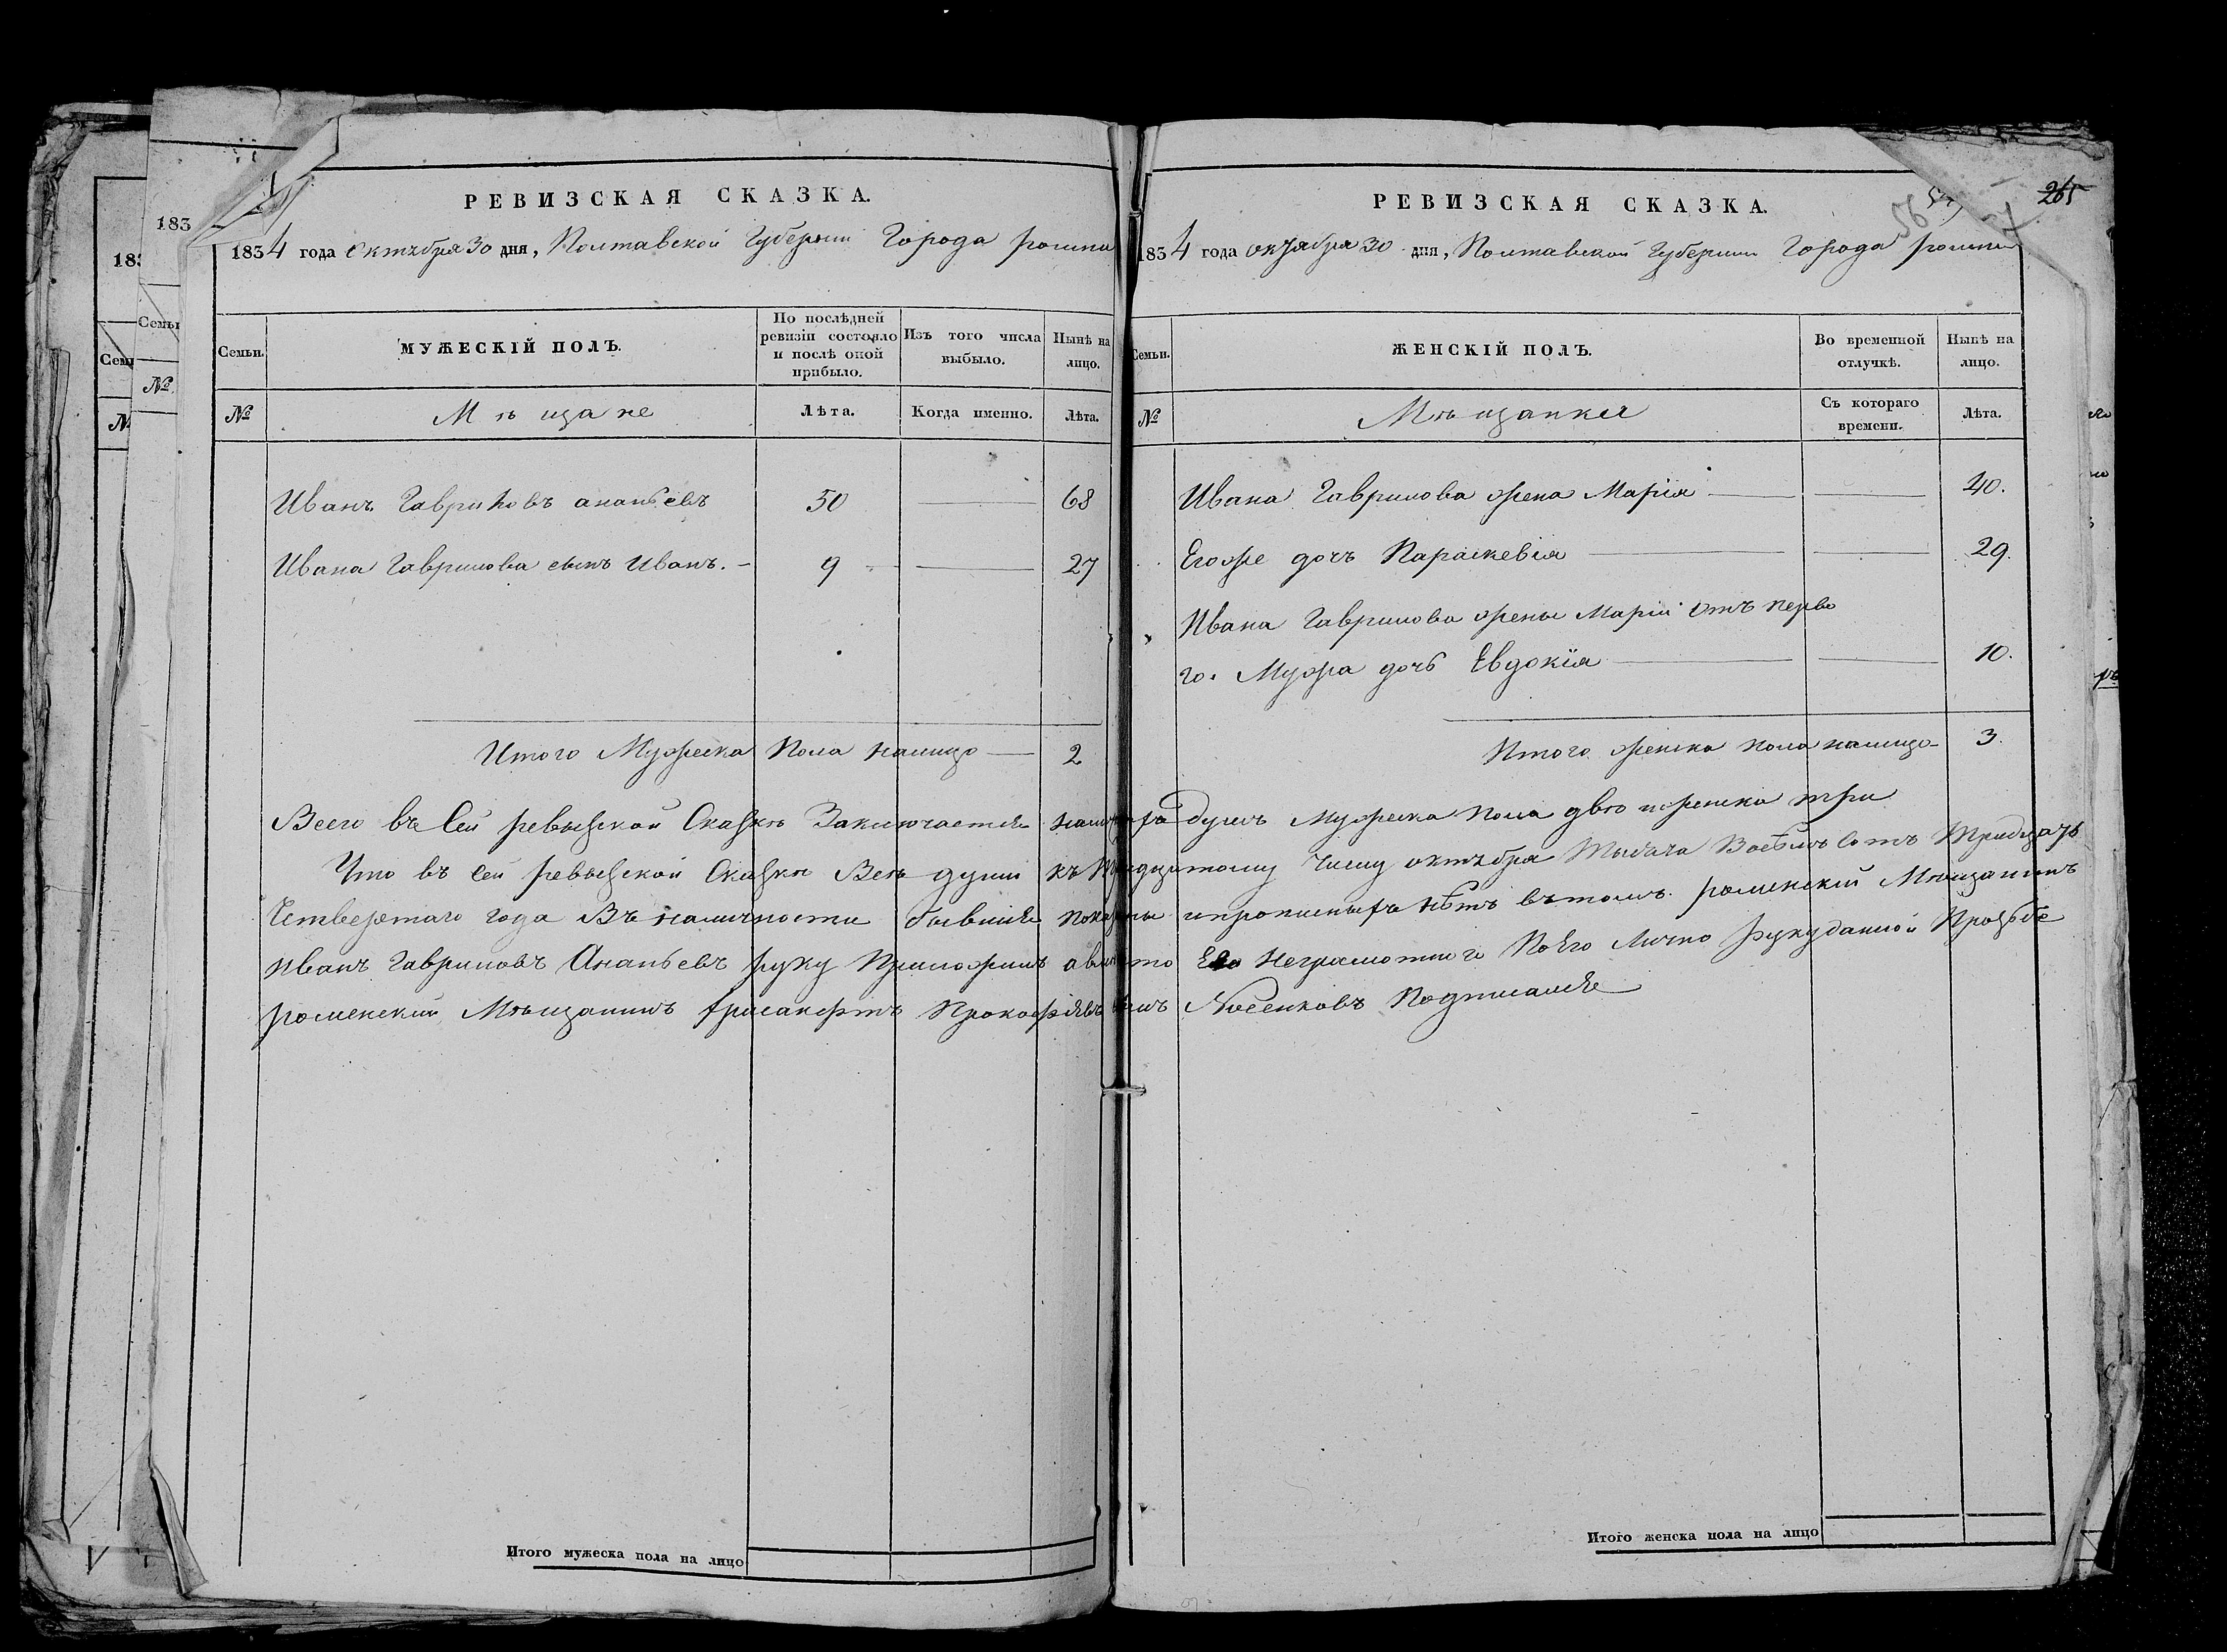 РЕВИЗСКАЯ СКАЗКА.
1834 года октября 30 дня, Полтавской Губернии Города ромна
Семьи.
МУЖЕСКІЙ ПОЛЪ.
По послѣдней ревизіи состояло и послѣ оной прибыло.
Изъ того числа выбыло.
Нынѣ на лицо.
№
Мѣщане
Лѣта.
Когда именно.
Лѣта.
Иванъ Гавриловъ ананьевъ 50 68
Ивана Гаврилова сынъ Иванъ. 9 27
Итого Мужеска Пола налицо 2
РЕВИЗСКАЯ СКАЗКА.
265
1834 года октября 30 дня, Полтавской Губернии Города ромна
Семьи.
ЖЕНСКІЙ ПОЛЪ.
Во временной отлучкѣ.
Нынѣ на лицо.
№
Мѣщанки
Съ котораго времени.
Лѣта.
Ивана Гаврилова жена Марія 40.
Егоже дочъ Параскевія 29.
Ивана Гаврилова жены Маріи отъ перво
го. Мужа дочь Евдокія 10.
Итого женска пола налицо 3.
Всего въ Сей ревыской Сказкѣ Заключается душъ Мужеска пола двѣ и женска три
Что въ сей ревыской Сказкѣ Всѣ души къ тридцатому Числу октября Тысяча Восѣмъ сотъ Тридцать
Четвертаго года Въ наличности бывшие показаны ипрописныхъ нѣтъ вътомъ роменский Мѣщанинъ
Иванъ Гавриловъ Ананьевъ руку Приложилъ авместо Его Неграмотного ПоЕго Лично рукуданой Прозьбе
роменский Мѣщанинъ Прокофіевъ сынъ Носенковъ Подписался
Итого мужеска пола на лицо
Итого женска пола на лицо